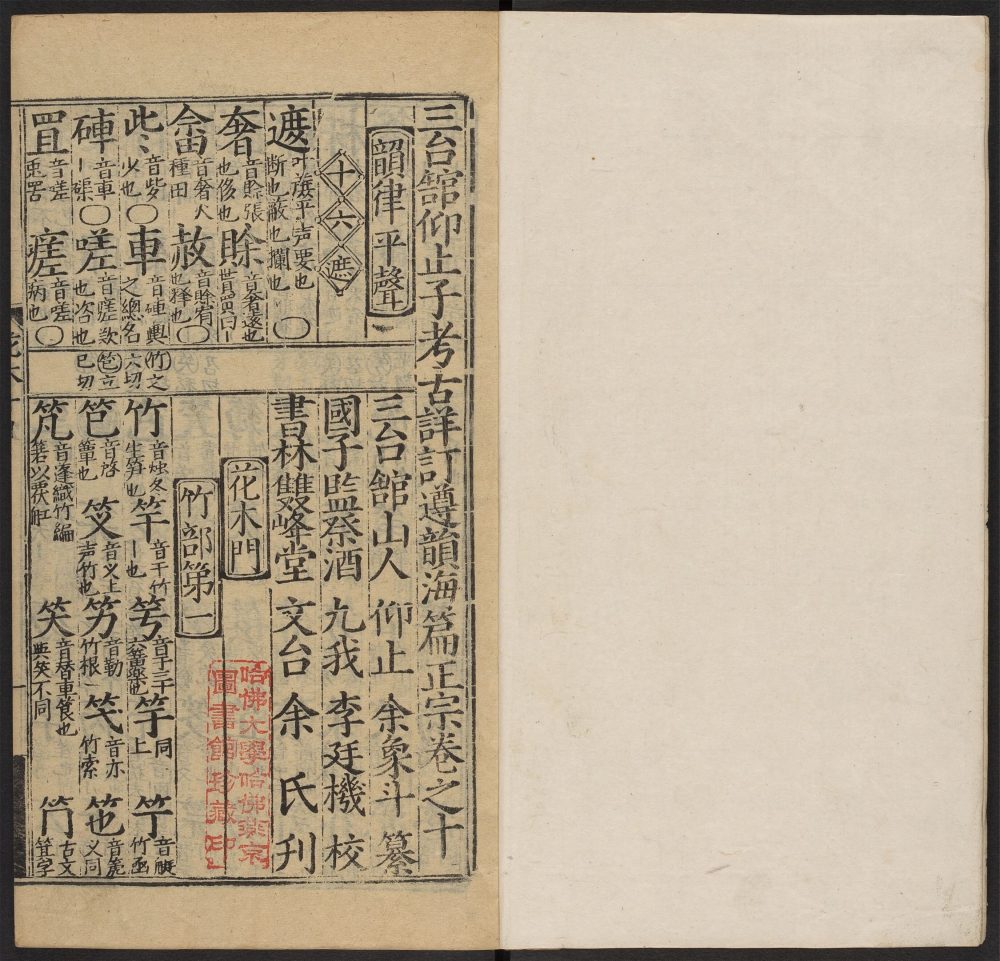 三台舘仰止子考古詳訂遵韻海篇正宗卷之十
韻律平聲
十六遮
遮 叶蔗平声要也断也蔽也攔也
奢 音賒張也侈也
賒 音奢遠也貰買曰丨
畲 音奢火種田
赦 音賒宥也釋也
些 音
少也
車 音硨輿之總名
硨 音車丨磲
嗟 音
也咨也
罝 音嗟兎罟
瘥 音嗟病也
竹之六切
笆立巴切
三台舘山人 仰止 余象斗 纂
國子監祭酒 九我 李廷機 校
書林雙峰堂 文台 余 氏 刋
花木門
竹部第一
竹 音烛冬生笋也
竿 音干竹丨也
竽 同上
笆
簟也
笅 音义上声竹也
竻 音勒竹根
笑 與笑不同
竹索
义同
古文箕字
音逢織竹編箬以覆舡
哈佛大學哈佛燕京圖書館珍藏印